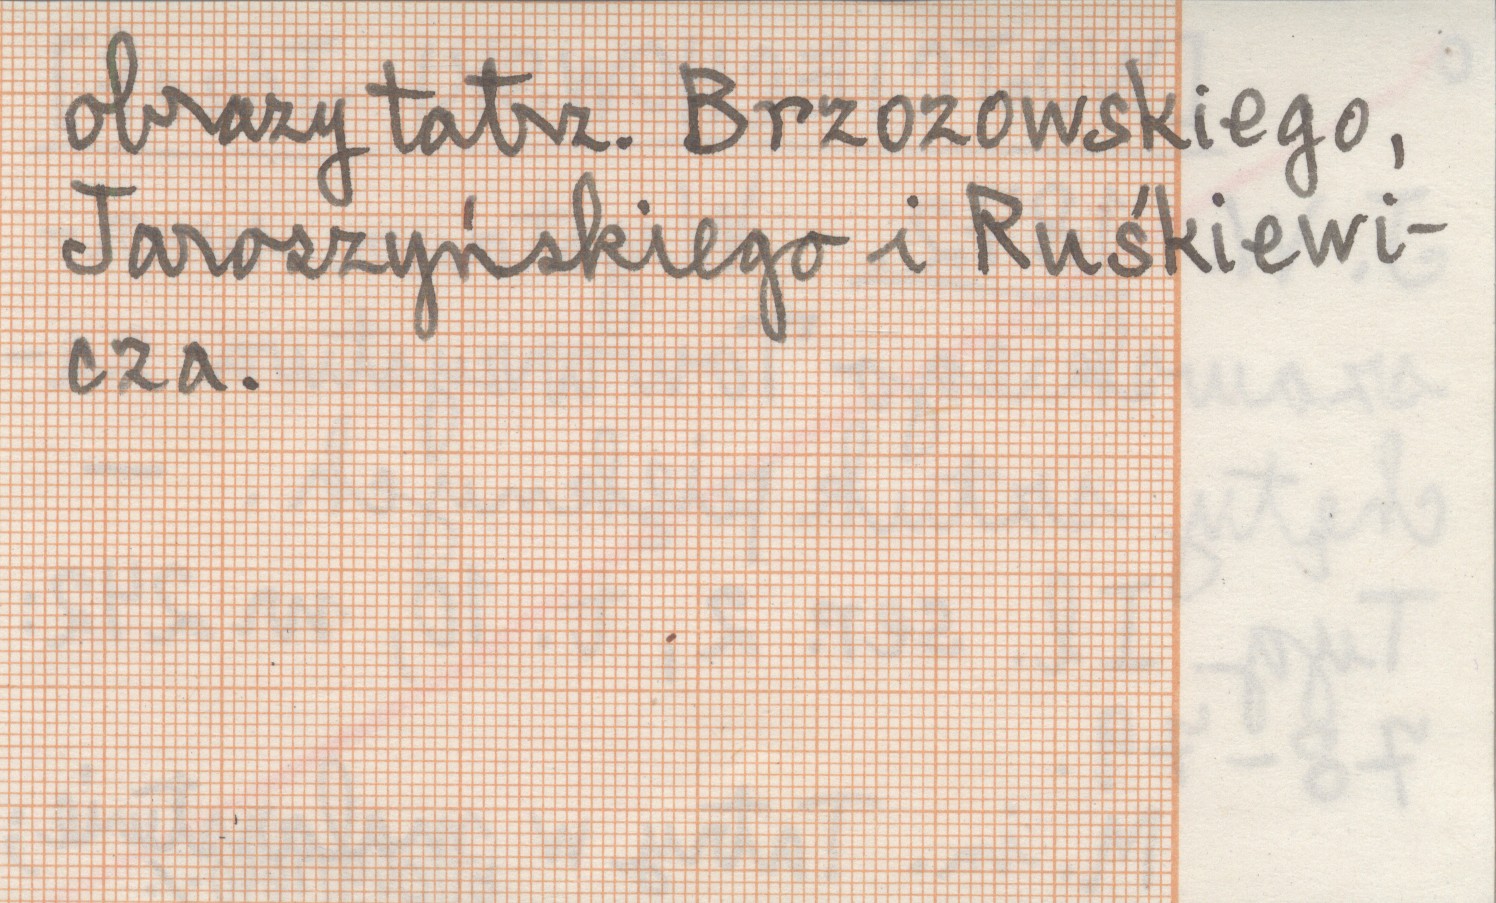 obrazy tatrz. Brzozowskiego,
Jaroszyńskiego i Ruśkiewi-
cza.